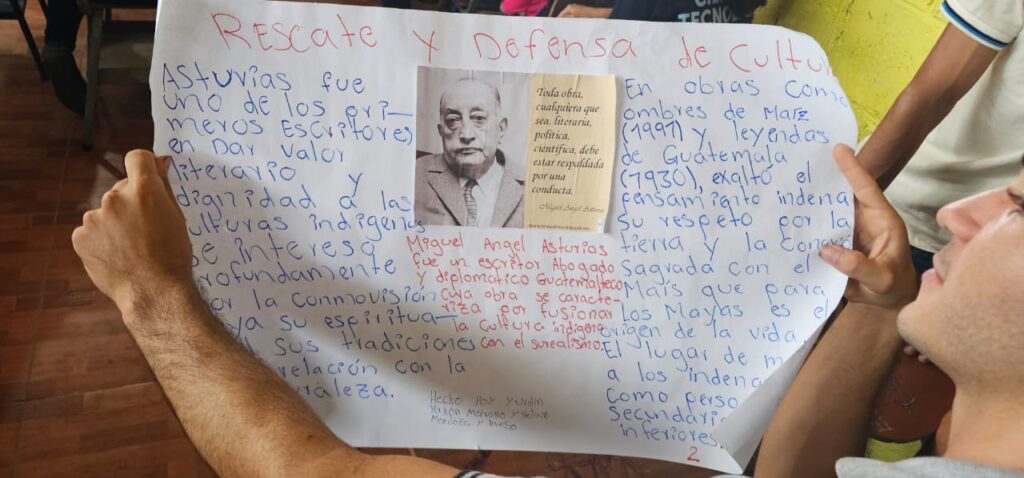 Rescate y Defensa de Cultu
Asturias fue
uno de los pri-
meros escritores
en Dar valor
literario y
dignidad a las
culturas indígenas
se interesa
profundamente
por la Conmovisión
maya su espiritua-
sus tradiciones
relación con la
raleza.
Toda obra,
cualquiera que
sea, literaria,
política,
científica, debe
estar respaldada
por una
conducta.
Miguel Angel Asturias
Miguel Angel Asturias
fue un escritor Abogado
y diplomatico Guatemalteco
cuya obra se caracte-
riza por fusionar
la cultura indígena
con el surealismo.
Hecho Por
Mendoza y
En obras Como
ombres de Maíz
(1991) y leyendas
de Guatemala
(1930), exaltó el
pensamiento indena
su respeto por la
tierra y la Conexi
Sagrada con el
Maís que para
los Mayas es el
origen de la vida
El lugar de m
a los indena
Como perso
Secundario
inferiores
2
TECNOL